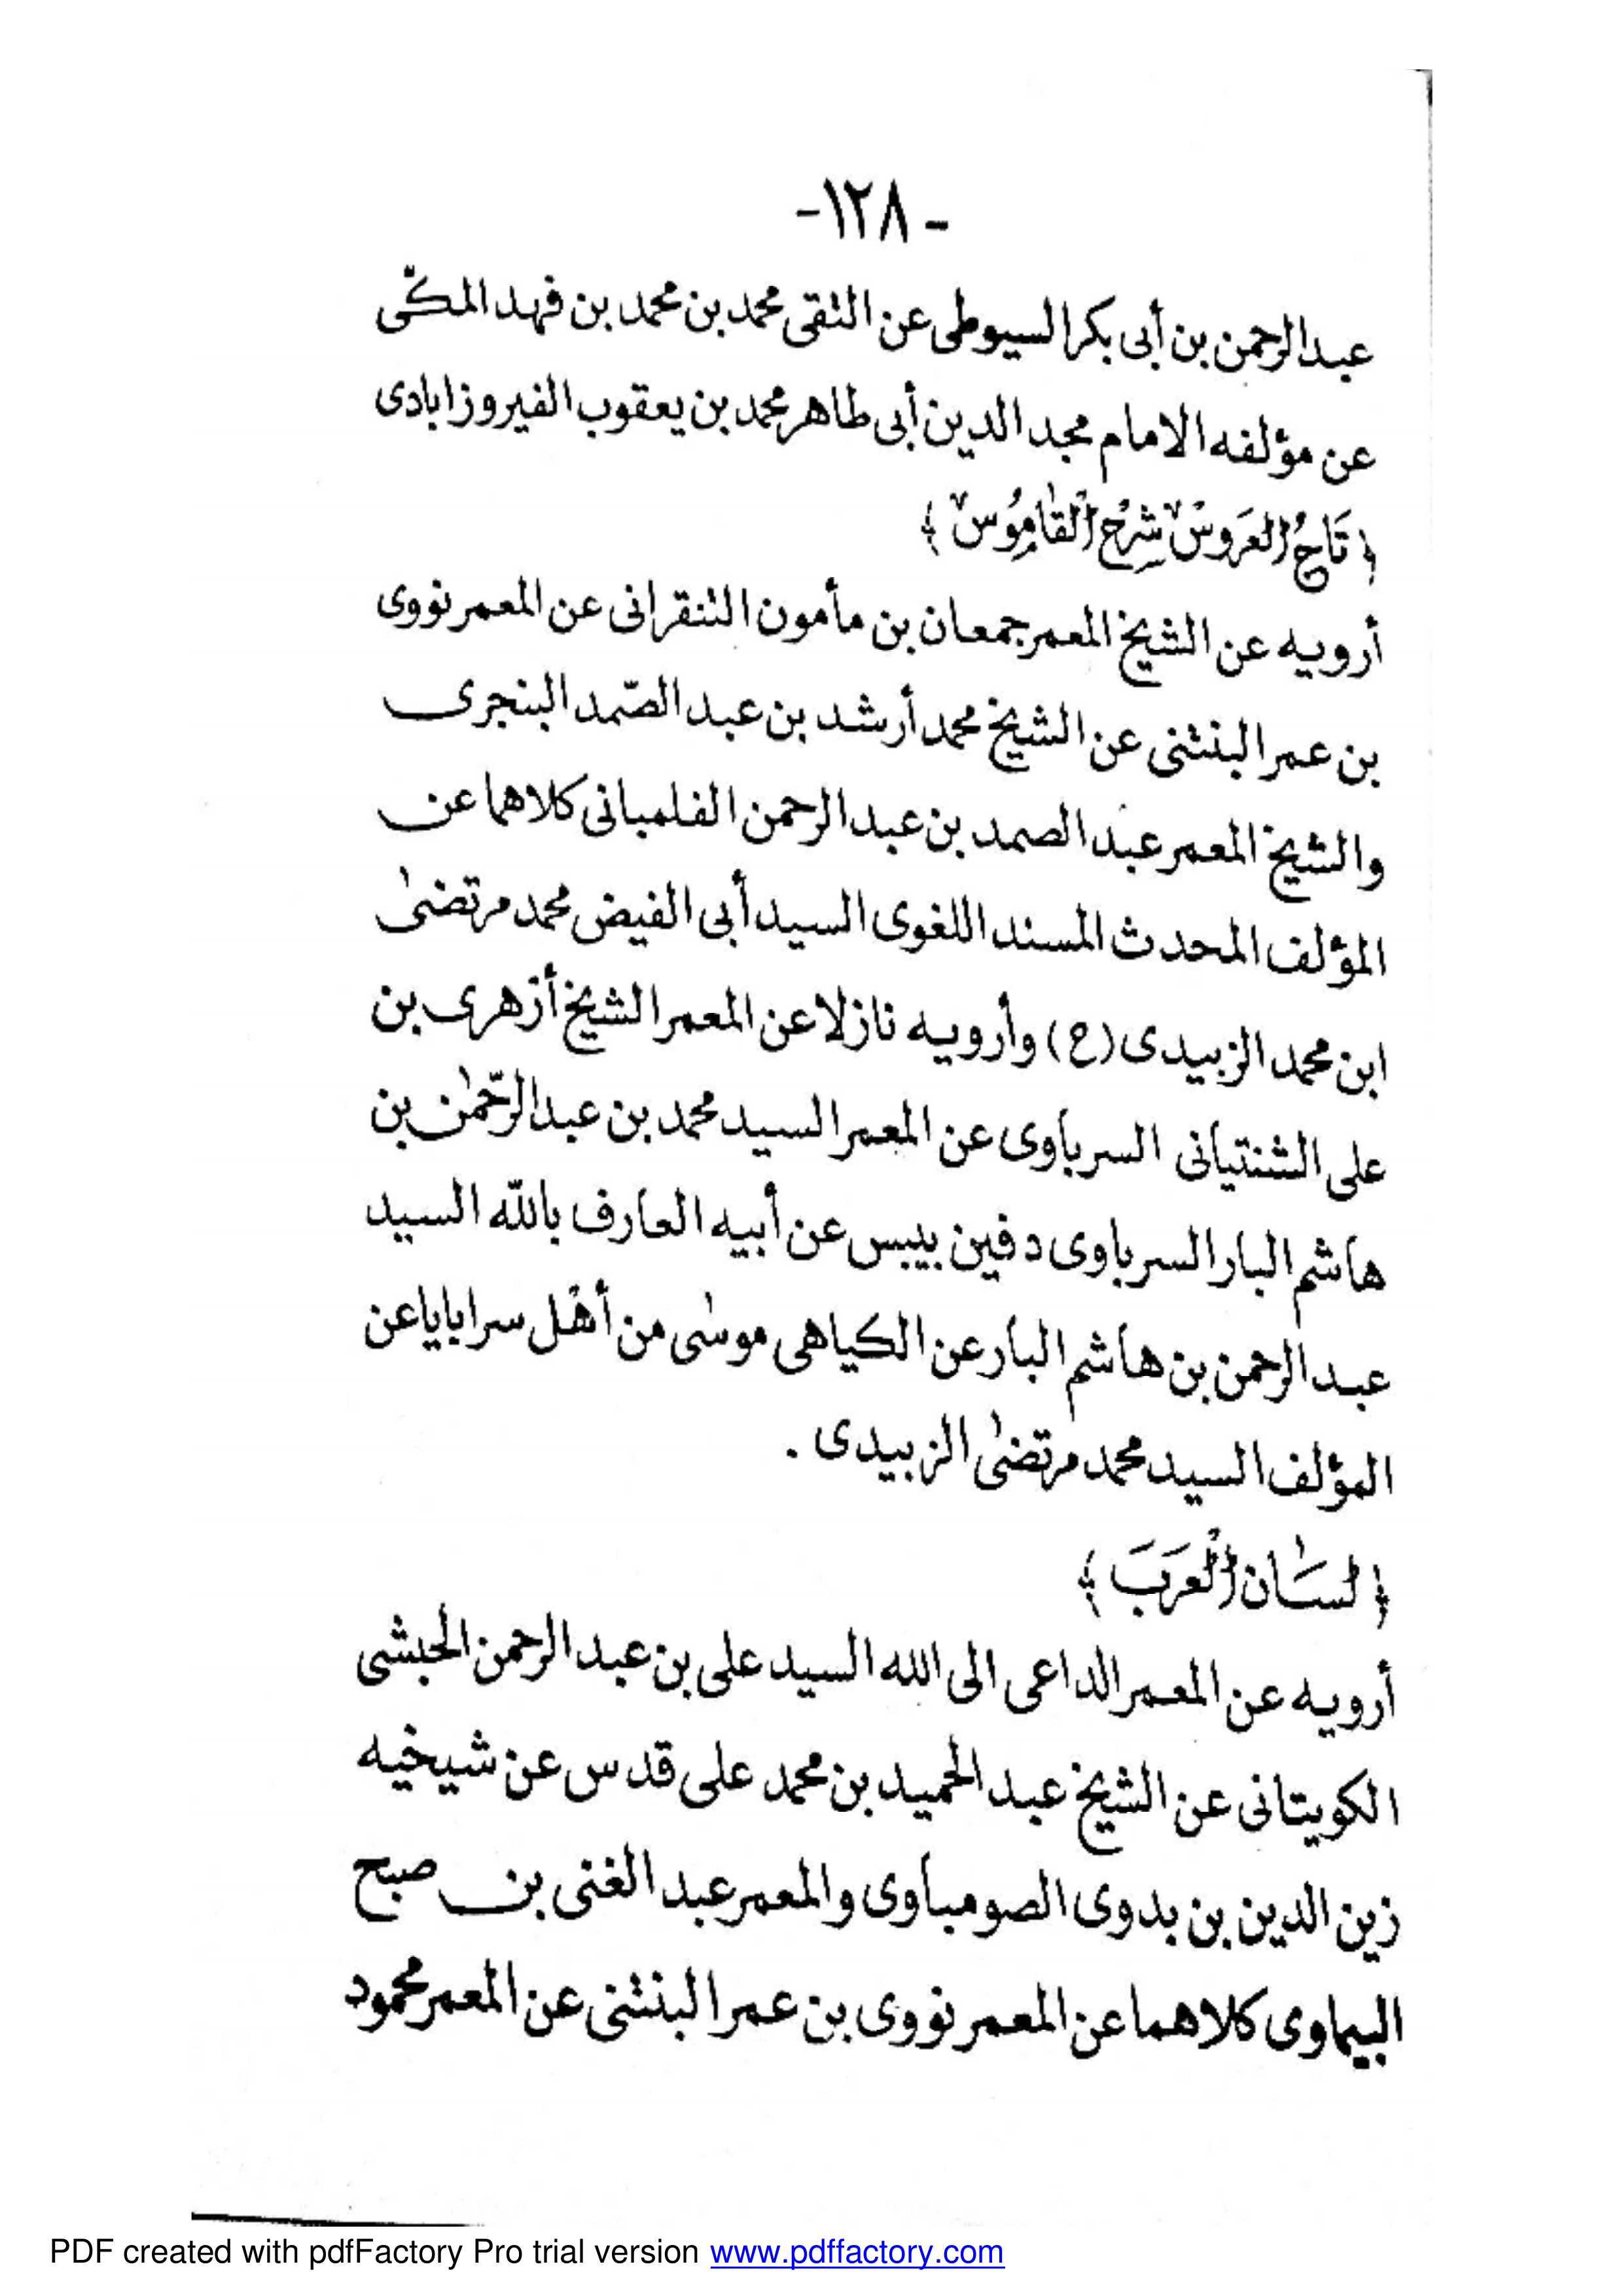 -١٢٨-
عبدالرحمن بن أبى بكر السيوطى عن التقى محمد بن محمد بن فهد المكّى
عن مؤلفه الامام مجد الدين أبى طاهر محمد بن يعقوب الفيروزابادى
﴿ تَاجُ العَرَوسْ شَرْحُ القَامُوسْ ﴾
أرويه عن الشيخ المعمر جمعان بن مأمون التنقرانى عن المعمر نووى
بن عمر البنتنى عن الشيخ محمد أرشد بن عبد الصّمد البنجرى
والشيخ المعمر عبد الصمد بن عبد الرحمن الفلمبانى كلاهما عن
المؤلف المحدث المسند اللغوى السيد أبى الفيض محمد مرتضىٰ
ابن محمد الزبيدى (ح) وأرويه نازلا عن المعمر الشيخ أزهرى بن
على الشنتيانى السرباوى عن المعمر السيد محمد بن عبد الرّحمٰن بن
هاشم البار السرباوى دفين بيبس عن أبيه العارف باللّه السيد
عبد الرحمن بن هاشم البار عن الكياهى موسٰى من أهْل سرابايا عن
المؤلف السيد محمد مرتضىٰ الزبيدى .
﴿ لسَٰان الْعَرَبَ ﴾
أرويه عن المعمر الداعى الى الله السيد على بن عبد الرحمن الحبشى
الكويتانى عن الشيخ عبد الحميد بن محمد على قدس عن شيخيه
زين الدين بن بدوى الصومباوى والمعمر عبد الغنى بن صبح
البيماوى كلاهما عن المعمر نووى بن عمر البنتنى عن المعمر محمود
PDF created with pdfFactory Pro trial version www.pdffactory.com